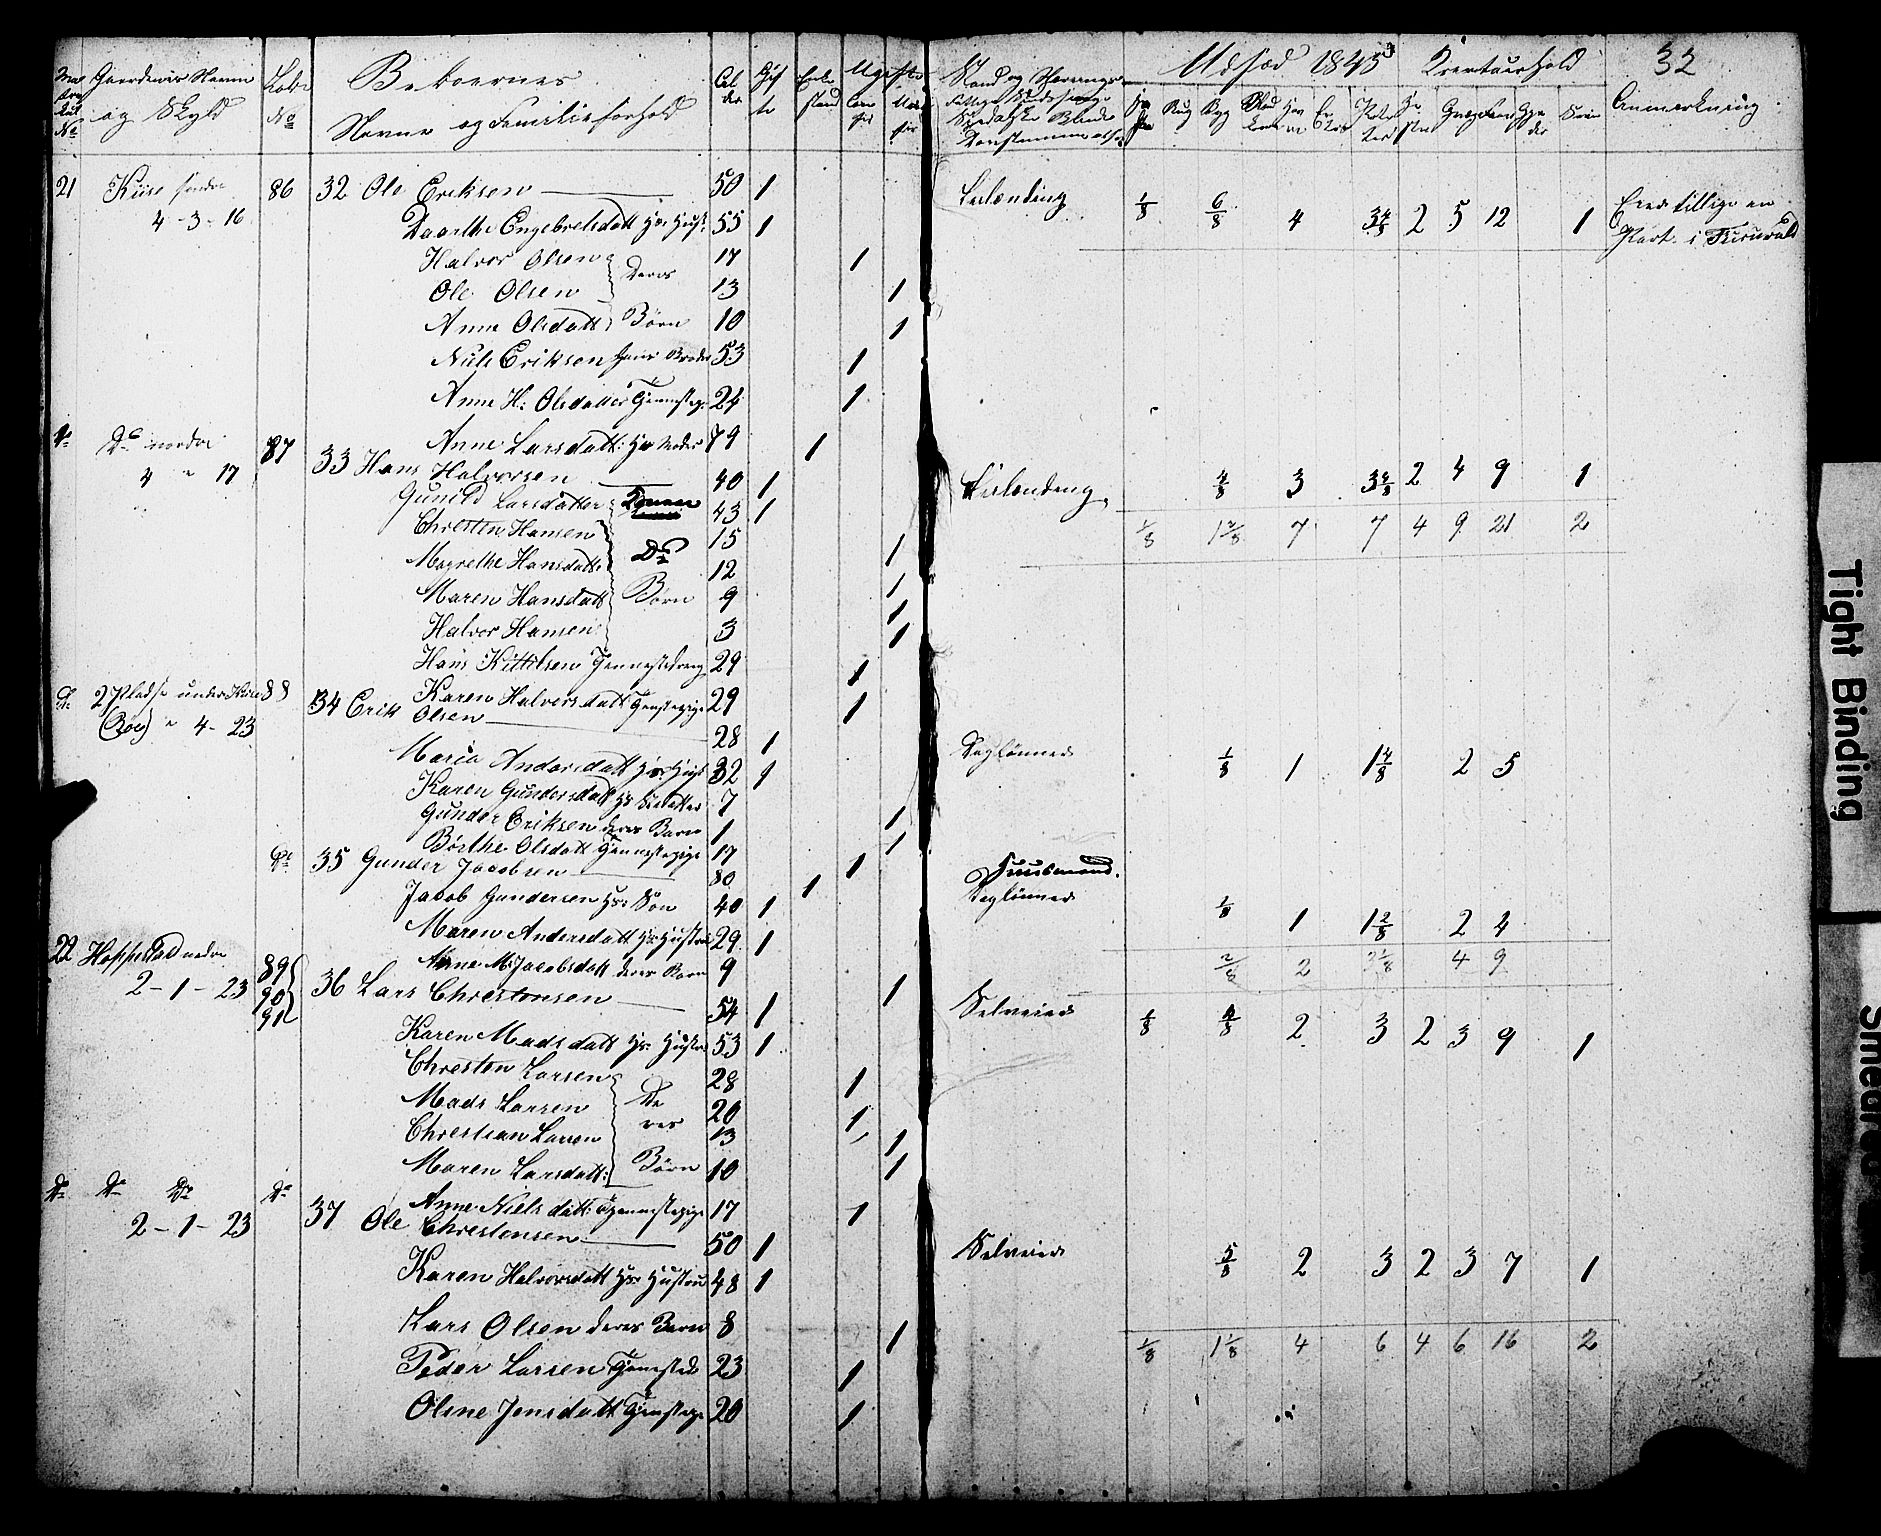 Gaardenes Navne og Skyld
Lobe No
Beboernes Navne og Familieforhold
Udsæd 1845
Kreaturhold
32
Anmærkning
21 Kise søndre 86 32 Ole Eriksen 50 1 Leilænding 1/8 6/8 4 3 4/8 2 5 12 1 tillige en
4 - 3 - 16 Dorthe Engebretsdatt Hs: Hust: 55 1 Part i
Halvor Olsen Deres 17 1
Ole Olsen 13 1
Anne Olsdatt Børn 10 1
Nils Eriksen hans Broder 53 1
Anne H: Olsdatter Tjenestep: 24 1
Do nordre 87 Anne Larsdatt: Hs Moder 79 1
4 " 17 33 Hans Halvorsen 40 1 Leilænding 4/8 3 3 4/8 2 4 9 1
Gunild Larsdatter 43 1 1/8 1 2/8 7 7 4 9 21 2
Christen Hansen 15 1
Magrethe Hansdatt: Ds 12 1
Maren Hansdatt Børn 9 1
Halvor Hansen 3 1
Hans Kittilsen Tjenestedreng 29 1
Do 2 Pladse under Kise 88 Karen Halversdatt Tjenstepige 29 1
(Roe) " 4 - 23 34 Erik Olsen 28 1 Daglønner 1/8 1 1 4/8 2 5
Maria Andorsdatt Hs: Hust 32 1
Karen Gundersdatt Hs 7 1
Gunder Eriksen deres Barn 1 1
Børthe Olsdatt Tjenestepige 17 1
Do 35 Gunder Jacobsen 80 1 Huusmand
Jacob Gundersen Hs: Søn 40 1 Daglønner 1/8 1 1 2/8 2 4
Maren Andersdatt Hs: Hustru 29 1
22 Hoppestad nedre 89 Anne M: Jacobsdatt deres Barn 9 1 2/8 2 4 9
2 - 1 - 23 90 36 Lars Christensen 54 1 Selveier 1/8 4/8 2 3 2 3 9 1
91
Karen Madsdatt Hs: Hustru 53 1
Christen Larsen 28 1
Mads Larsen De 20 1
Christian Larsen res 13 1
Maren Larsdatt: Børn 10 1
Do Do Do Do Anne Nielsdatt: Tjenestepige 17 1
2 - 1 - 23 37 Ole Christensen 50 1 Selveier 5/8 2 3 2 3 7 1
Karen Halvorsdatt Hs: Hustru 48 1
Lars Olsen deres Barn 8 1 1/8 1 1/8 4 6 4 6 16 2
Peder Larsen Tjenestedr 23 1
Olene Jensdatt Tjenstepige 20 1
Tight Binding